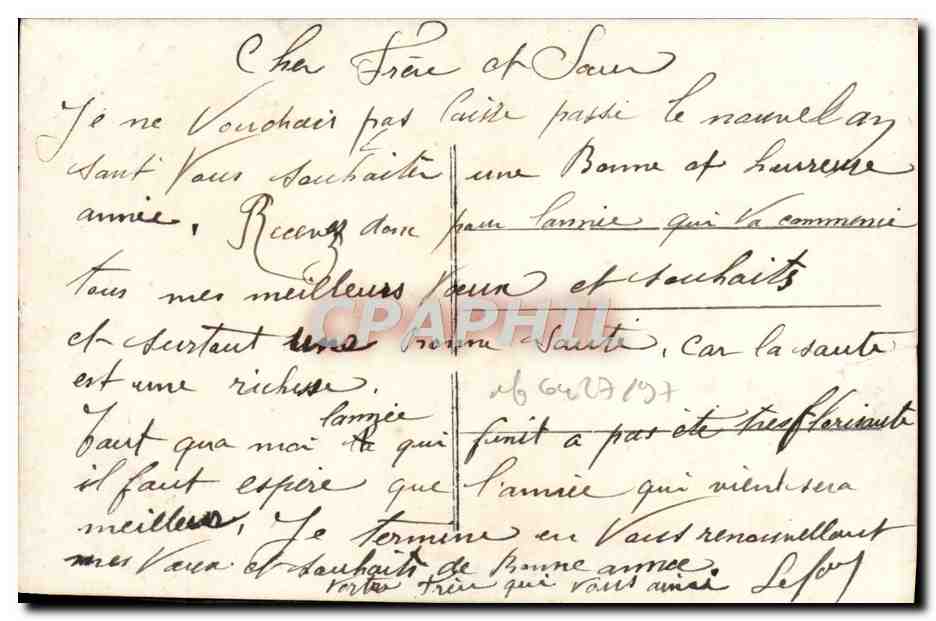 Cher Frère et Sœur
Je ne Voudrair pas laisse passe le nouvel an
sant Vous souhaiter une Bonne et hureuse
année. Recevez donc pour lannée qui va commence
tous mes meilleurs Vœux et souhaits
CPAPHIL
et surtout une bonne Santé, car la sante
est une richesse. 6427/197
lannée
Tant qua moi qui finit a pas été très florisante
il faut espère que l'année qui vient sera
meilleur, Je termine en Vous renouvellant
mes Vœux et souhaits de Bonne année.
Votre Frère qui vous aime